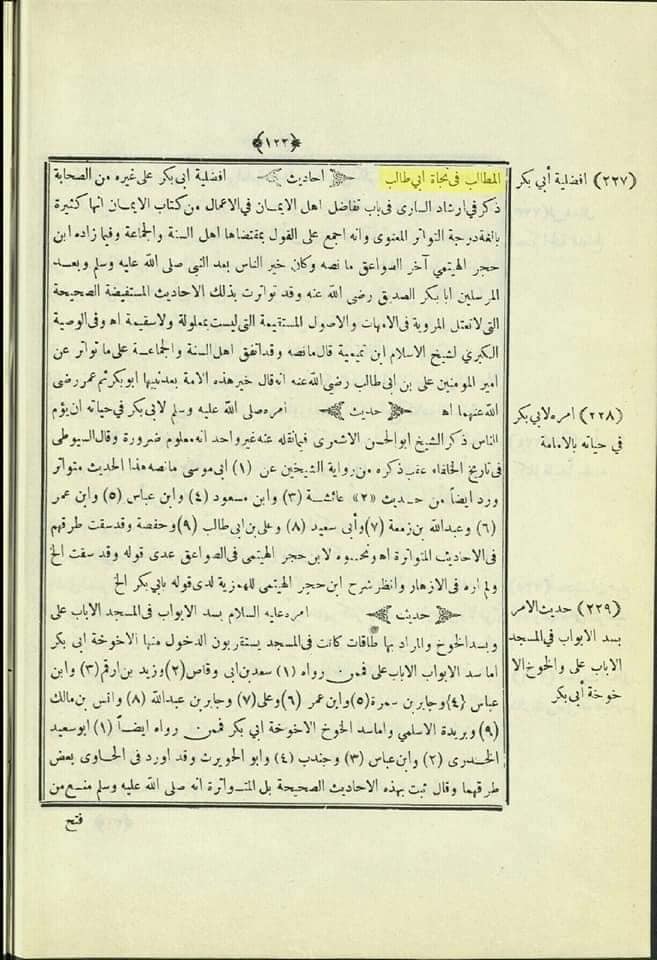 ﴿١٢٣﴾
المطالب فى نجاة ابى طالب ﴿ احاديث ﴾ افضلية ابى بكر على غيره من الصحابة
ذكر فى ارشاد السارى فى باب تفاضل اهل الايمان فى الاعمال من كتاب الايمان انها كثيرة
بالغة درجة التواتر المعنوى وانه اجمع على القول بمقتضاها اهل السنة والجماعة وفيما زاده ابن
حجر الهيتمي آخر الصواعق ما نصه وكان خير الناس بعد النبى صلى الله عليه وسلم وبعد
المرسلين ابا بكر الصديق رضى الله عنه وقد تواترت بذلك الاحاديث المستفيضة الصحيحة
التى لا تعتل المروية فى الامهات والاصول المستقيمة التى ليست بمعلولة ولا سقيمة اه وفى الوصية
الكبرى لشيخ الاسلام ابن تيمية قال ما نصه وقد اتفق اهل السنة والجماعة على ما تواتر عن
امير المومنين على بن ابى طالب رضى الله عنه انه قال خير هذه الامة بعد نبيها ابو بكر ثم عمر رضى
الله عنهما اه ﴿ حديث ﴾ امره صلى الله عليه وسلم لابى بكر فى حياته ان يؤم
الناس ذكر الشيخ ابو الحسن الاشعرى فيما نقله عنه غير واحد انه معلوم ضرورة وقال السيوطى
فى تاريخ الخلفاء عقب ذكره من رواية الشيخين عن (١) ابى موسى ما نصه هذا الحديث متواتر
ورد ايضاً من حديث «٢» عائشة (٣) وابن مسعود (٤) وابن عباس (٥) وابن عمر
(٦) وعبد الله بن زمعة (٧) وأبى سعيد (٨) وعلى بن ابى طالب (٩) وحفصة وقد سقت طرقهم
فى الاحاديث المتواترة اه ونحوه لابن حجر الهيتمى فى الصواعق عدى قوله وقد سقت الخ
ولم اره فى الازهار وانظر شرح ابن حجر الهيتمى للهمزية لدى قوله بابي بكر الخ
﴿ حديث ﴾ امره عليه السلام بسد الابواب فى المسجد الا باب على
وبسد الخوخ والمراد بها طاقات كانت فى المسجد يستقربون الدخول منها الا خوخة ابى بكر
اما سد الابواب الا باب على فممن رواه (١) سعد بن ابى وقاص (٢) وزيد بن ارقم (٣) وابن
عباس (٤) وجابر بن سمرة (٥) وابن عمر (٦) وعلى (٧) وجابر بن عبد الله (٨) وانس بن مالك
(٩) وبريدة الاسلمي واما سد الخوخ الا خوخة ابى بكر فممن رواه ايضاً (١) ابو سعيد
الخدرى (٢) وابن عباس (٣) وجندب (٤) وابو الحويرث وقد اورد فى الحاوى بعض
طرقهما وقال ثبت بهذه الاحاديث الصحيحة بل المتواترة انه صلى الله عليه وسلم منع من
فتح
(٢٢٧) افضلية أبى بكر
(٢٢٨) امره لابى بكر
في حياته بالامامة
(٢٢٩) حديث الامر
بسد الابواب فى المسجد
الا باب على والخوخ الا
خوخة أبى بكر